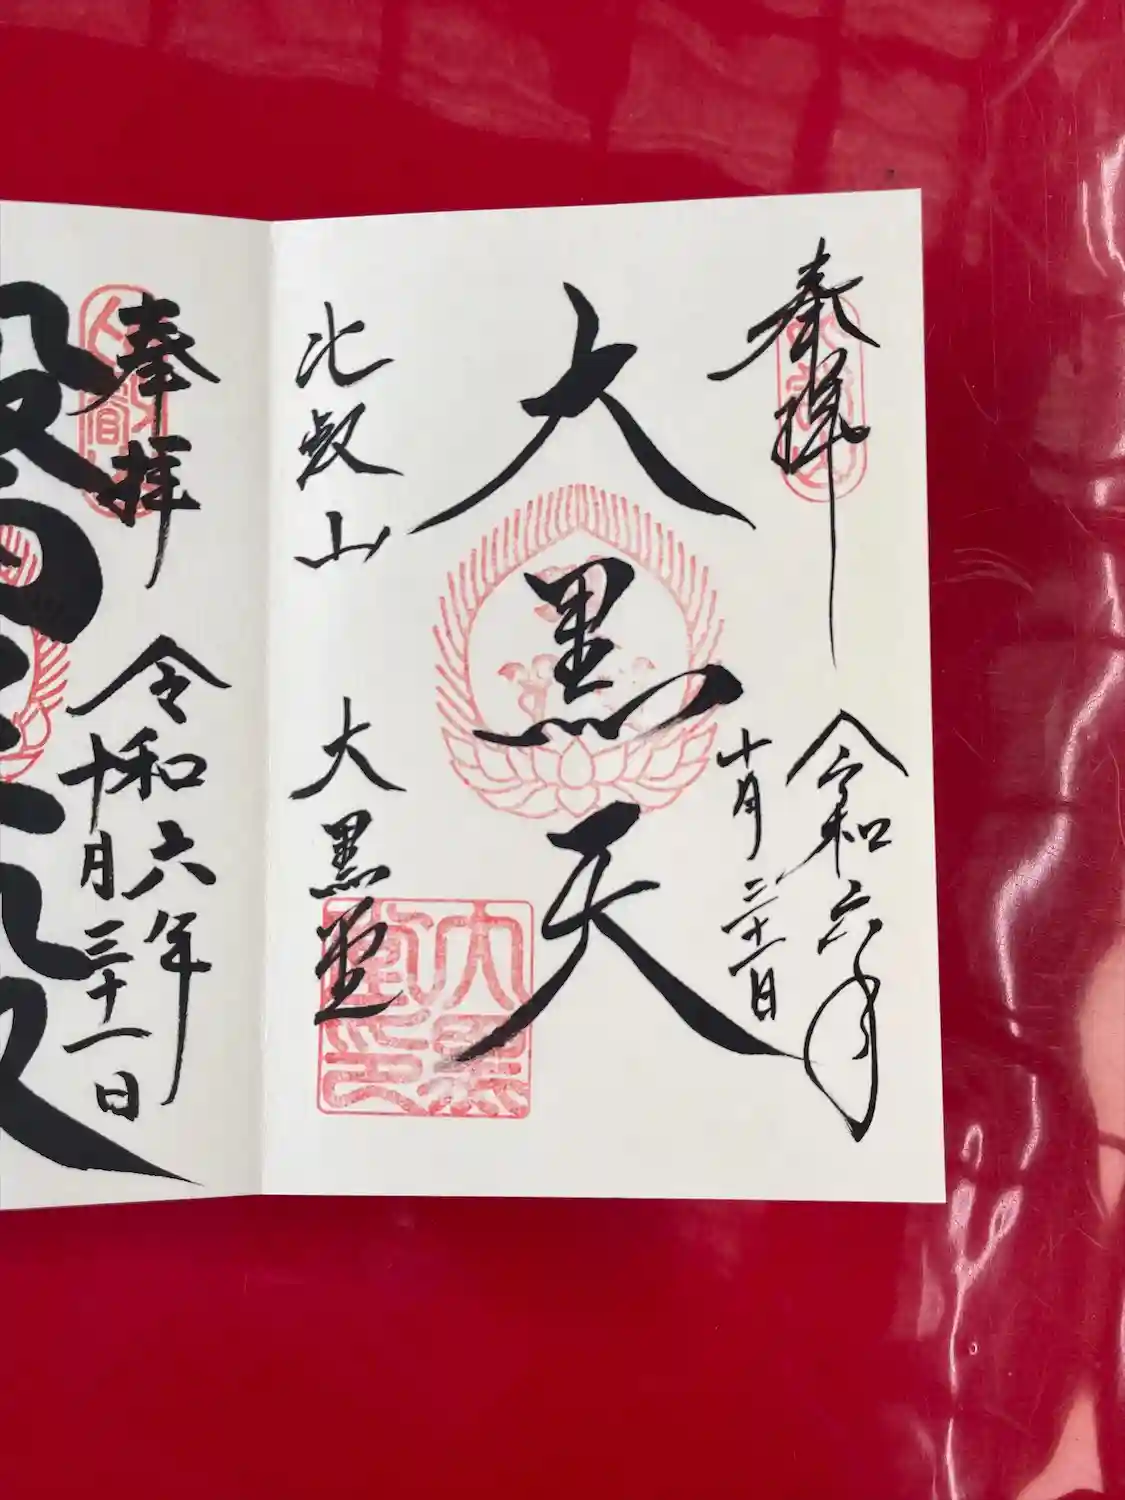 奉拝
令和六年
十月三十一日
大黒天
比叡山 大黒堂
大黒堂印
奉拝
令和六年
十月三十一日